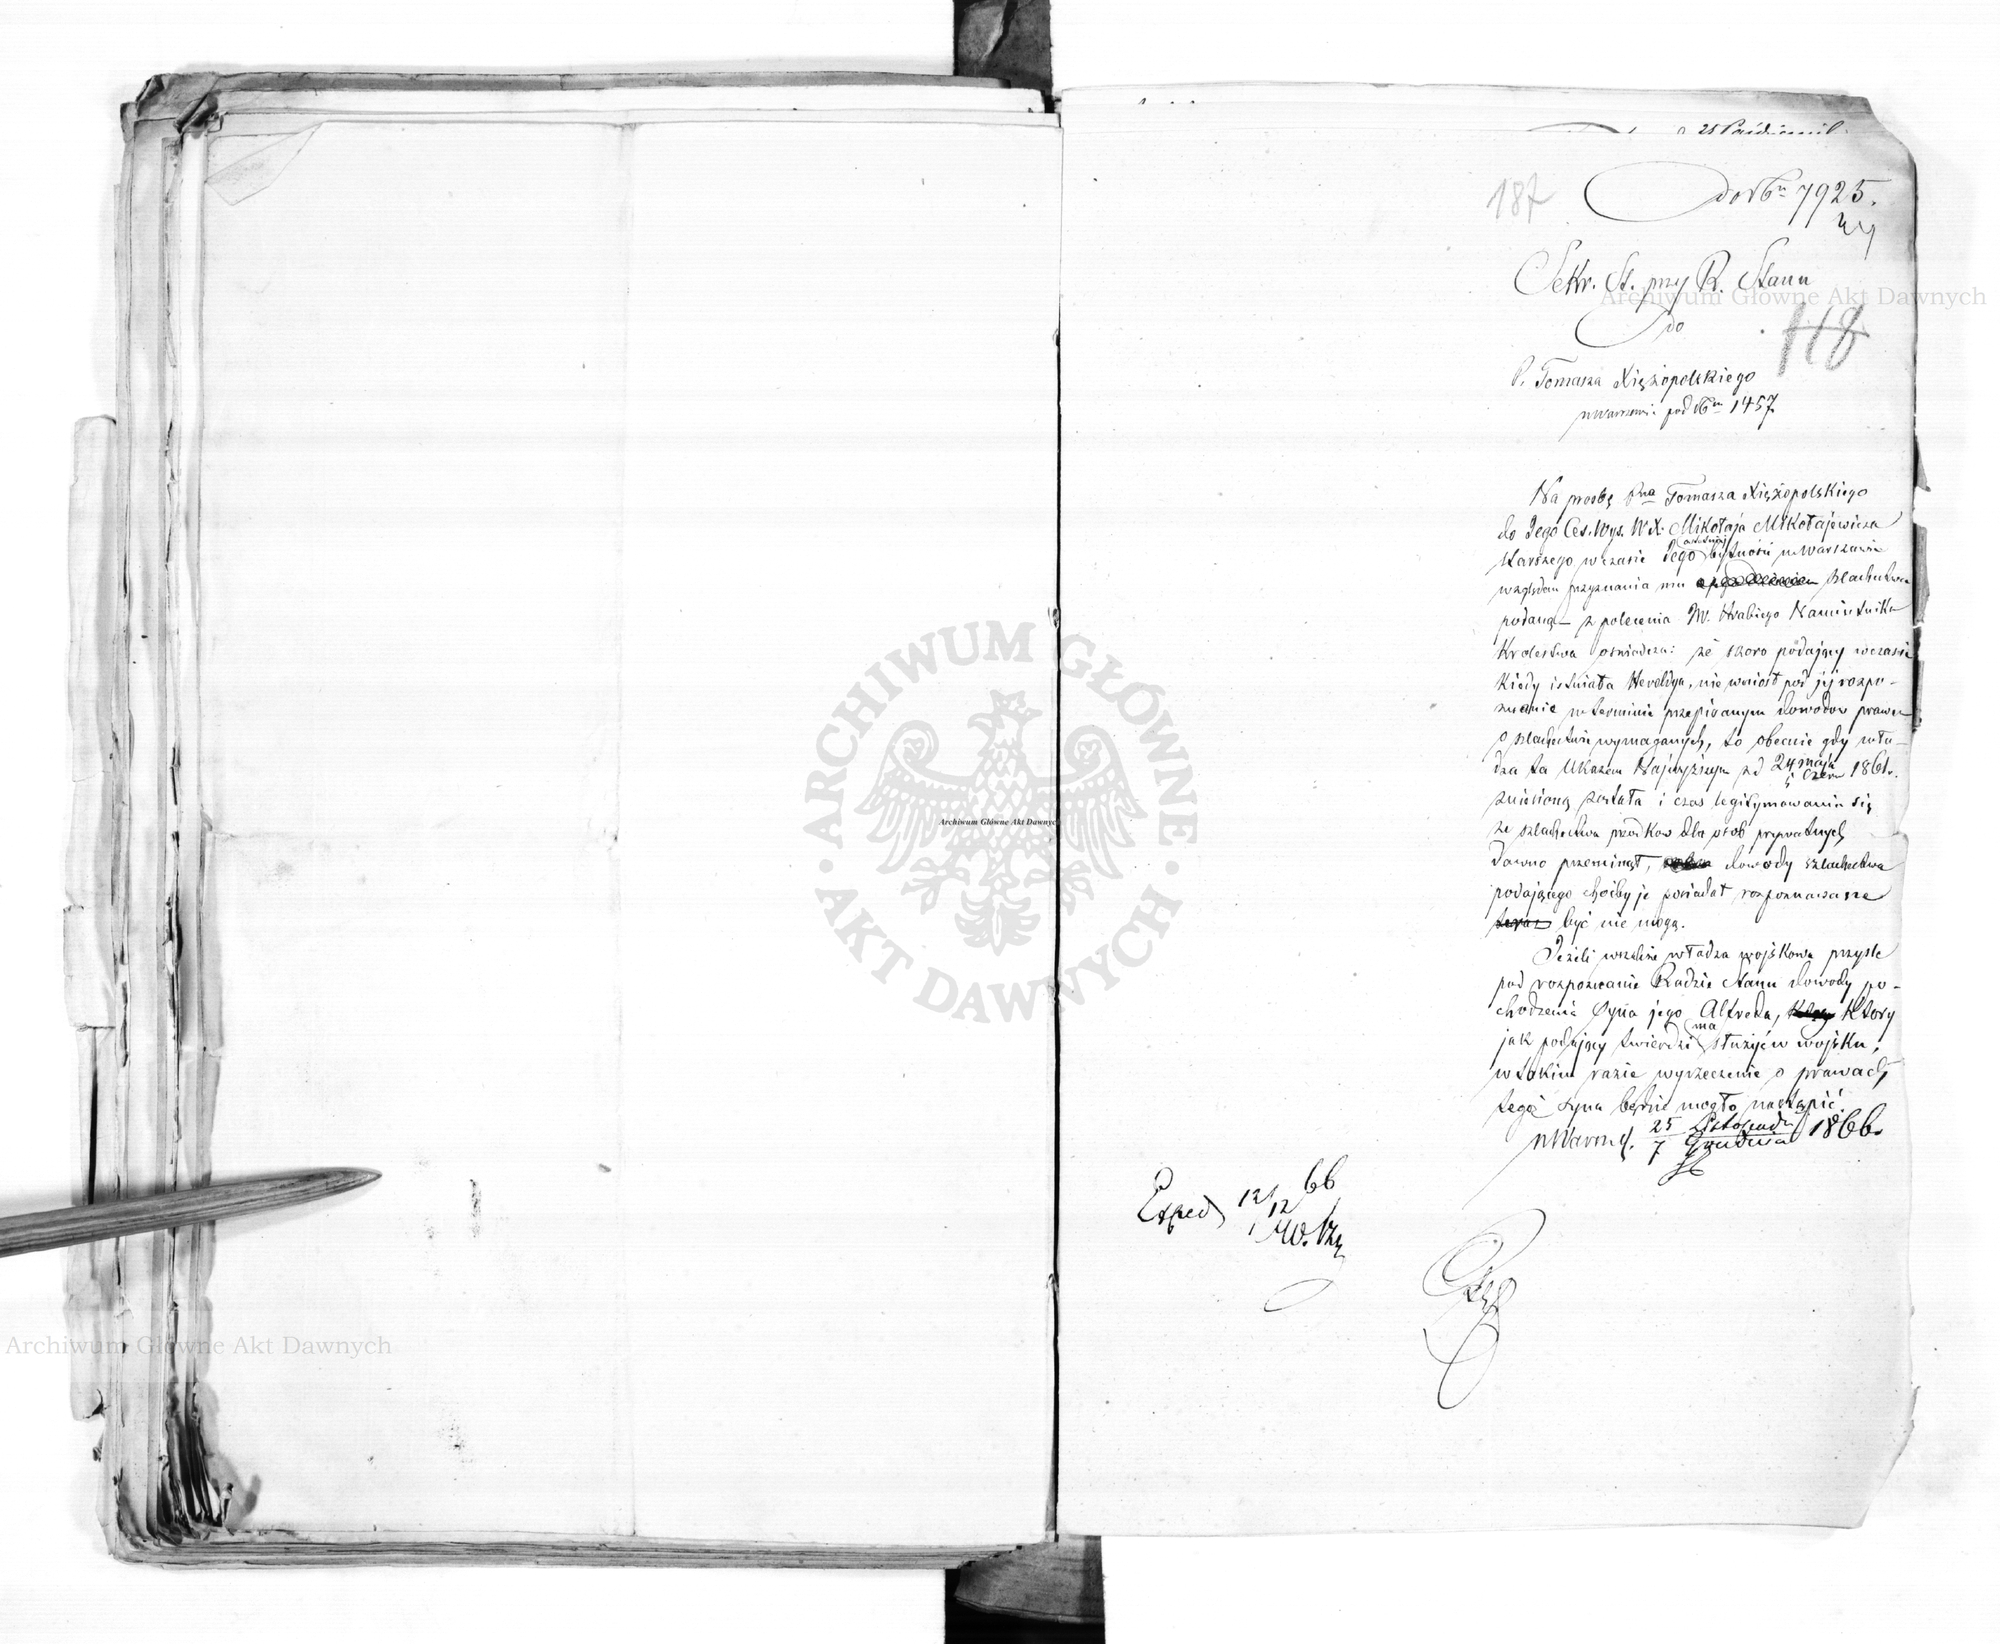 25 Październik
187
do Nru 7925.
Sekr. St. przy R. Stanu
do
118
P. Tomasza Xiężopolskiego
w Warszawie pod Nrm 1457
Na prosbę Pna Tomasza Xiężopolskiego
do Jego Ces. Wys. W. X. Mikołaja Mikołajewicza
starszego w czasie Jego ostatniej bytności w Warszawie
względem przyznania mu szlachectwa
podaną – z polecenia JW. Hrabiego Namiestnika
Krolestwa oświadcza: że skoro podający w czasie
kiedy istniała Heroldya, nie wniosł pod jej rozpo-
znanie w terminie przepisanym dowodow prawem
o szlachectwie wymaganych, to obecnie gdy wła-
dza ta Ukazem Najwyższym z d 24 maja 5 Czerw 1861 r.
zniesioną została i czas legitymowania się
ze szlachectwa przodkow dla osob prywatnych
dawno przeminął, dowody szlachectwa
podającego choćby je posiadał rozpoznawane
teraz być nie mogą.
Jeżeli wszelnie władza wojskowa przyśle
pod rozpoznanie Radzie Stanu dowody po-
chodzenia Syna jego Alfreda, ktory
jak podający twierdzi ma służyć w wojsku,
w takim razie wyrzeczenie o prawach
tegoż syna będzie mogło nastąpić.
w Warsz d. 25 Listopada 7 Grudnia 1866 r.
Exped 12/12 66
Archiwum Główne Akt Dawnych
ARCHIWUM GŁÓWNE
AKT DAWNYCH
Archiwum Główne Akt Dawnych
Archiwum Główne Akt Dawnych